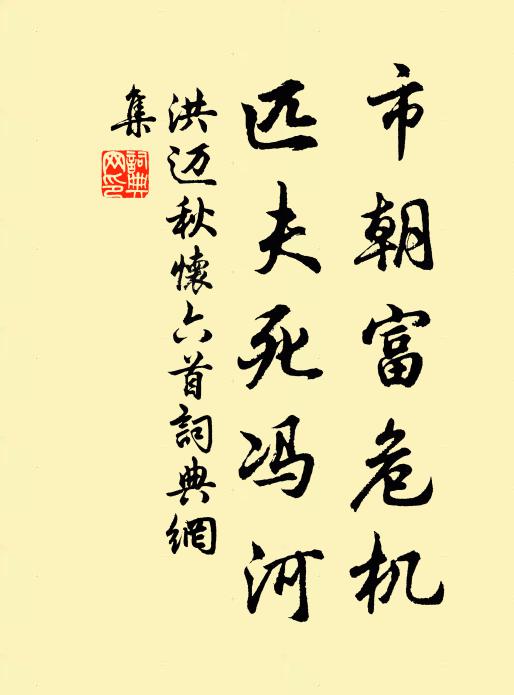 市朝富危机
匹夫死冯河
洪迈秋懷六首詞典網
集
詞典
网印